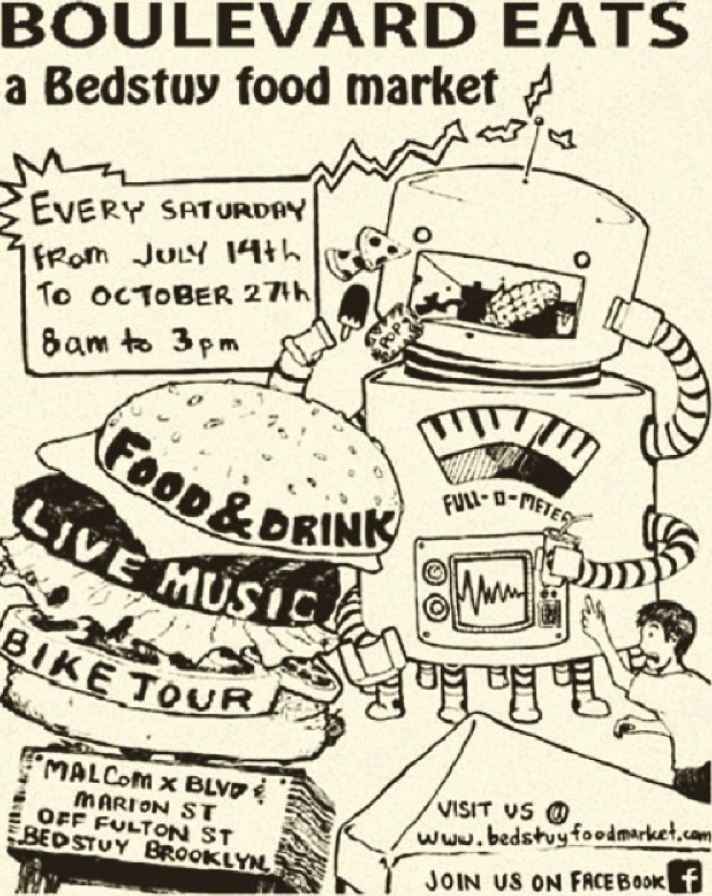 BOULEVARD EATS
a Bedstuy food market
EVERY SATURDAY
From JULY 14th
To OCTOBER 27th
8am to 3pm
POP!
FULL-O-METER
FOOD & DRINK
LIVE MUSIC
BIKE TOUR
MALCOM X BLVD &
MARION ST
OFF FULTON ST
BEDSTUY BROOKLYN
VISIT US @
www.bedstuyfoodmarket.com
JOIN US ON FACEBOOK f